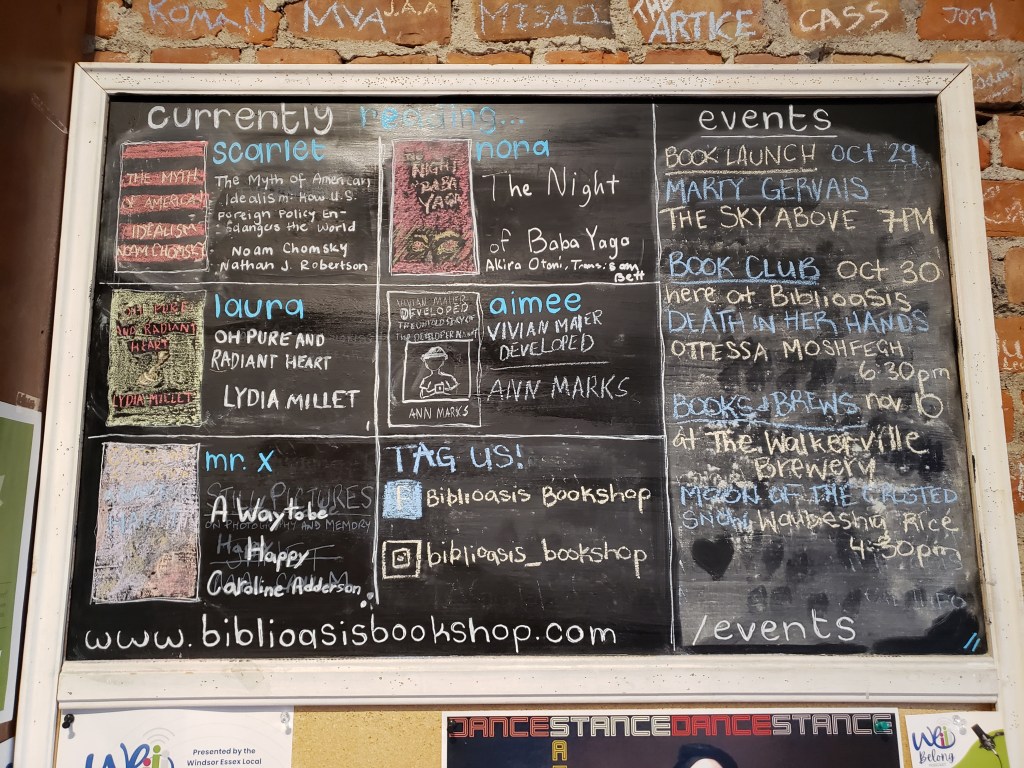 ROMAN MYA J.A.A MISAEL THE ARTKE CASS JOSH
currently reading...
scarlet
THE MYTH
OF AMERICAN
IDEALISM
NOAM CHOMSKY
The Myth of American
Idealism: How U.S.
Foreign Policy En-
dangers the World
Noam Chomsky
Nathan J. Robertson
nora
THE
NIGHT
OF BABA
YAGA
The Night
of Baba Yaga
Akira Otani, Trans. Sam
Bett
laura
OH PURE
AND RADIANT
HEART
LYDIA MILLET
OH PURE AND
RADIANT HEART
LYDIA MILLET
aimee
VIVIAN MAIER
DEVELOPED
THE UNTOLD STORY OF
ANN MARKS
VIVIAN MAIER
DEVELOPED
ANN MARKS
mr. x
STILL PICTURES
A Way to be
ON PHOTOGRAPHY AND MEMORY
Happy
Caroline Adderson
TAG US!
Biblioasis Bookshop
biblioasis_bookshop
www.biblioasisbookshop.com
events
BOOK LAUNCH OCT 29
MARTY GERVAIS
THE SKY ABOVE 7PM
BOOK CLUB OCT 30
here at Biblioasis
DEATH IN HER HANDS
OTTESSA MOSHFEGH
6:30pm
BOOKS & BREWS nov 10
at The Walkerville
Brewery
MOON OF THE CRUSTED
SNOW Waubeshig Rice
4:30pm
/events
Presented by the
Windsor Essex Local
DANCESTANCEDANCESTANCE
Belong